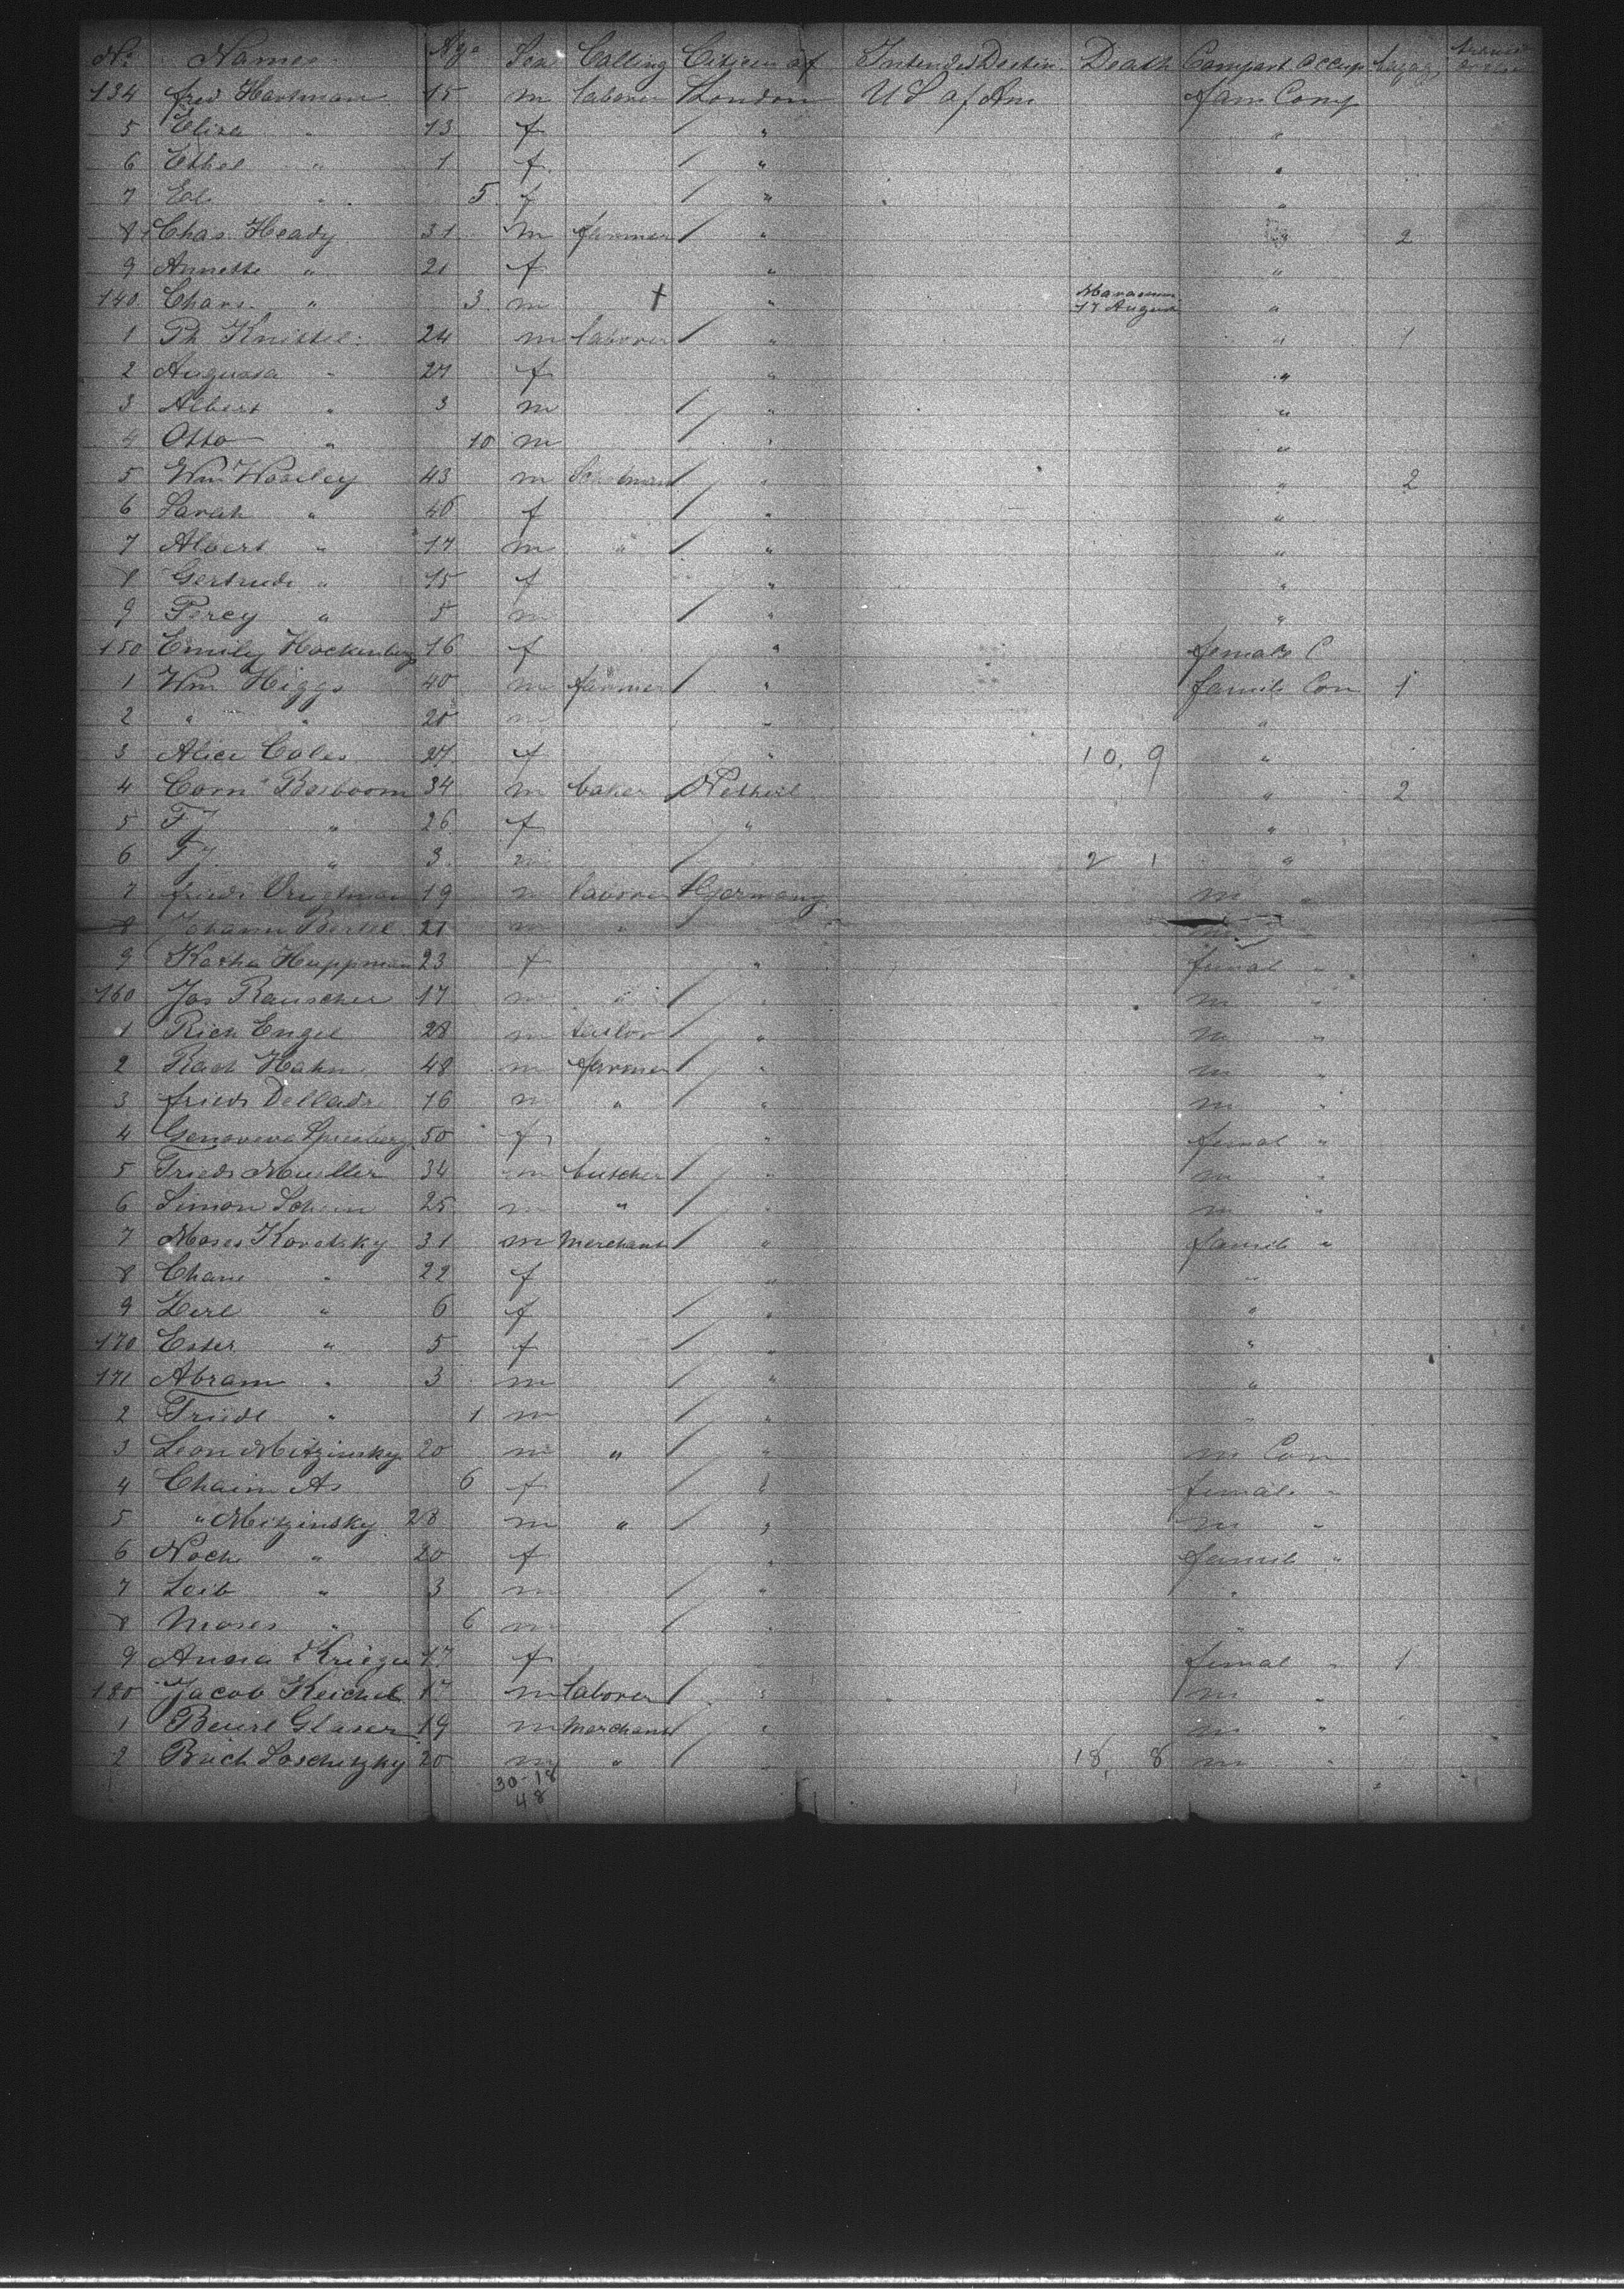 No Names Age Sex Calling Citizen of Intended Destin. Death Compart occup bagag
134 fred Hartman 15 m laborer London U S of Am fam Comp
5 Eliza " 13 f " "
6 Ethel " 1 f " "
7 Ed. " 5 f " "
8 Chas. Heady 31 m farmer " 2
9 Annette " 21 f " "
140 Chars. " 3 m † " Marasmus 17 August "
1 Ph Knittel 24 m laborer " " 1
2 Augusta " 27 f " "
3 Albert " 3 m " "
4 Otto " 10 m " "
5 Wm Woolley 43 m " " 2
6 Sarah " 46 f " "
7 Albert " 17 m " " "
8 Gertrude " 15 f " "
9 Percy " 5 m " "
150 Emily Hockenberg 16 f " female C
1 Wm Higgs 40 m farmer " famile Com 1
2 " " 20 m " "
3 Alice Coles 27 f " 10. 9 "
4 Corn Basboom 34 m baker Netherl " 2
5 F J " 26 f " "
6 F J. " 3 m 2 1 "
7 friedr 19 m laborer Germany m "
8 Johann Bertel 21 m " m
9 Katha Huppman 23 f " femal "
160 Jos Rauscher 17 m " " m "
1 Rich Engel 28 m tailor " m "
2 Hahn 48 m farmer " m "
3 friedr 16 m " " m "
4 Genoveva 50 f " femal "
5 Friedr Mueller 34 m butcher " m "
6 Simon 25 m " " m "
7 Moses Kovatsky 31 m Merchant " famile "
8 Chane " 22 f " "
9 Zirl " 6 f " "
170 Ester " 5 f " "
171 Abram " 3 m " "
2 Friedl " 1 m " "
3 Leon Mitzinsky 20 m " " m Com
4 Chaim As 6 f " female "
5 " Mitzinsky 28 m " " m "
6 Noch " 20 f " famile "
7 Leib " 3 m " "
8 Moses " 6 m " "
9 Anna Krieger 17 f femal " 1
180 Jacob Reichel 17 m laborer " m "
1 Beurl Glaser 19 m Merchant " m "
2 Loschitzky 20 m " 18, 8 m "
30-18
48